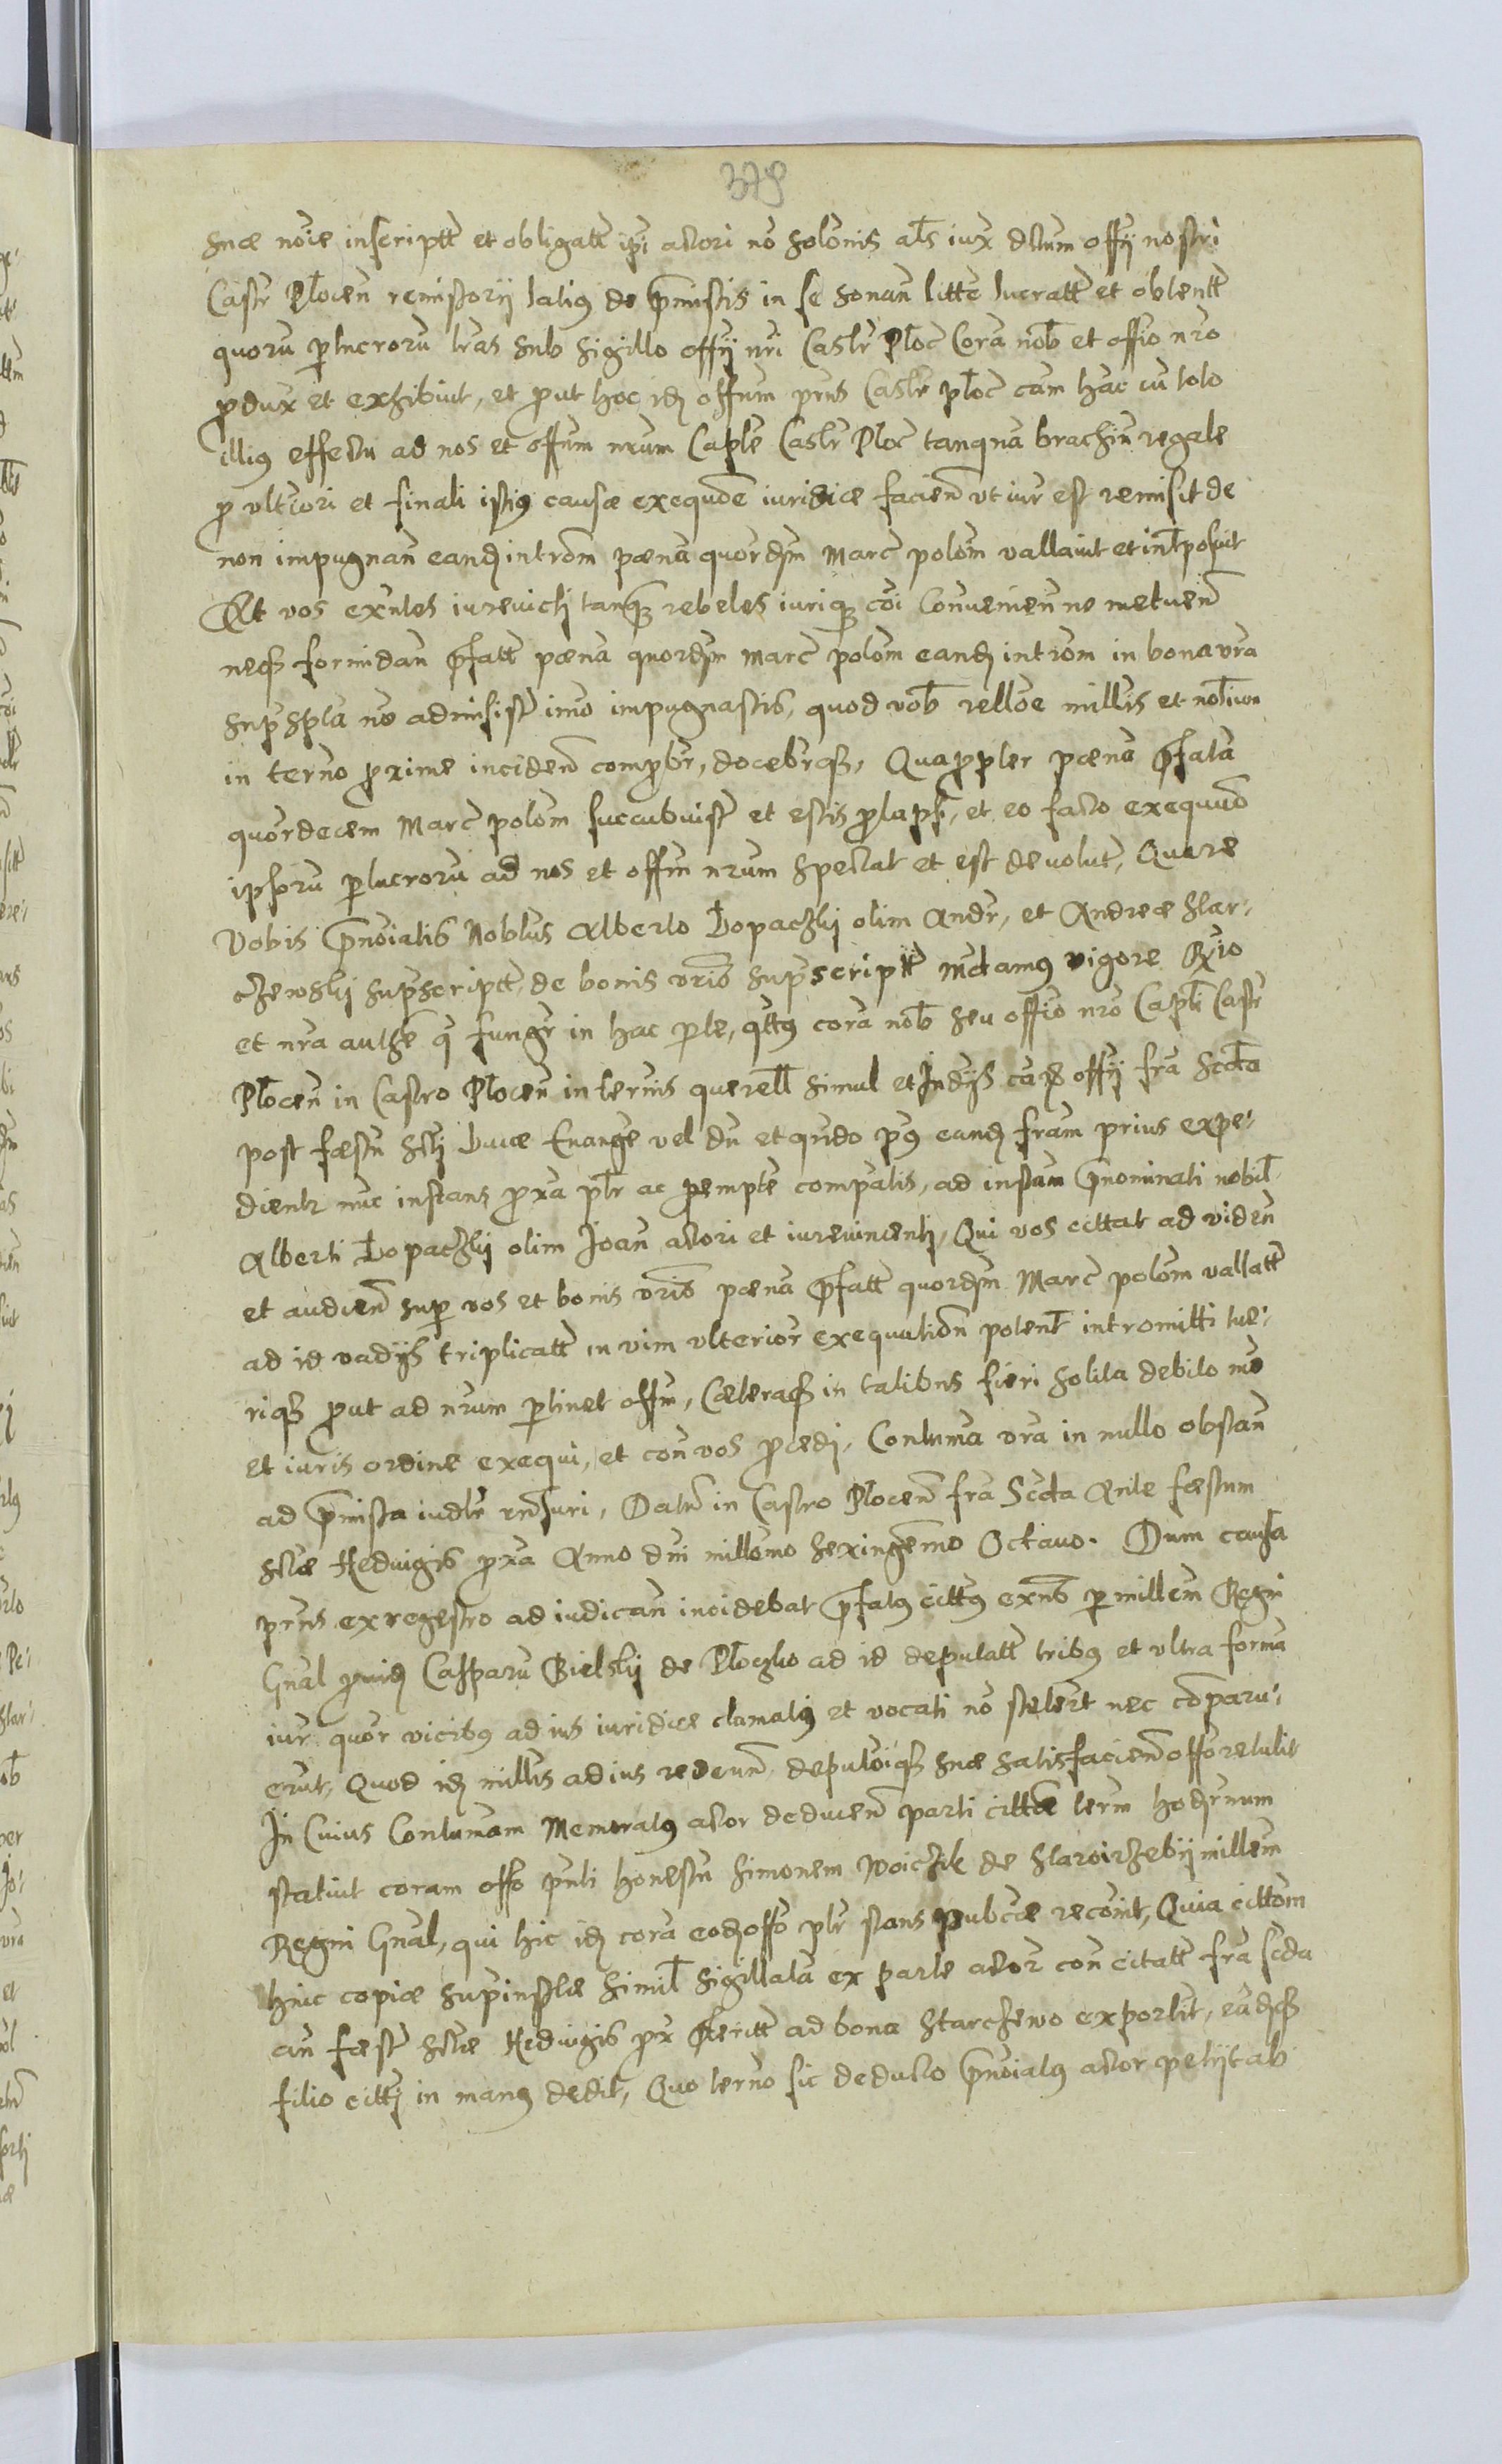 379
suæ noīe inscriptt et obligatt ipi actori nō solōnis al̄s iux dctum offy nostri
Castr Plocen̄ remissorij latiꝯ de p̄missis in se sonan̄ littē lucratt et obtentt
quorū p̱lucrorū lr̄as sub sigillo offy nr̄i Castr Ploc Corā nob̄ et offio nr̄o
p̱dux et exhibuit, et p̱ut hoc idē offum p̄ns Castr ploc cām hāc cū toto
illiꝯ effectu ad nos et offum nr̄um Captle Castr Ploc tanquā brachiū regale
p̱ vlteriori et finali istiꝯ causæ exequōe iuridicæ facien̄ vt iur̄ est remisit de
non impugnan̄ eandē introm̄ pœna quordm̄ Marc polom̄ vallauit et int̄posuit
At vos exn̄tes iureuicti tanqȝ rebeles iuriqȝ cōi Conuenien̄ ne metuen̄
neqȝ formidan̄ p̄fatt pœnā quordm̄ Marc polom̄ eandē introm̄ in bona vr̄a
sup̱scpta nō admisistꝭ imo impugnastis, quod vob̄ rellōe nillis et nob̄lium
in termo p̱xime inciden̄ comp̱br̄, docebrqȝ, Quap̱pter pœna p̄fata
quordecem Marc polom̄ succubuistꝭ et estis p̱lapsi, et eo facto exequuō
ipsorū p̱lucrorū ad nos et offm nr̄um spectat et est deuolut, Quare
Vobis p̄noīatis Noblus Alberto Lopaczki olim Andr, et Andreæ Star,
czewski sup̱scriptt, de bonis vr̄is sup̱scriptt Mdamꝯ vigore Rgio
et nr̄a authe q̄ fungr̄ in hac p̱te, qttꝯ corā nob̄ seu offio nr̄o Captli Castr
Plocen̄ in Castro Plocen̄ in termis querell simul et Indyś cās offy frā scda
post fæstū sctj Lucæ Euange vel dū et qn̄do p̱ꝯ eandē fr̄am prius expe,
dientr̄ nūc instans p̱xa ptr ac p̱empte comp̱atis, ad instam p̄nominati nobil̄
Alberti Lopaczki olim Joan̄ actori et iureuincenti, Qui vos cittat ad viden̄
et audien̄ sup̱ vos et bonis vr̄is pœnā p̄fatt quordm̄ Marc polom̄ vallatt
ad id vadyś triplicatt in vim vlterior exequutiōn potent intromitti lue,
riqȝ p̱ut ad nr̄um p̱tinet offm, Cæteraqȝ in talibus fieri solita debito mō
et iuris ordine exequi, et con vos p̱cedi, Contuma vr̄a in nullo obstan̄
ad p̄missa iudtr rnsuri, Datū in Castro Plocen̄ frā Scda Ante fæstum
sctæ Heduigis p̱xa Anno dn̄i millomo sexingemo Octauo. Dum causa
p̄ns ex regestro ad iudican̄ incidebat p̄fatꝯ cittꝯ exn̄s p̱ millem Regni
Gn̄al p̱uidē Casparū Bielski de Ploczko ad id deputatt tribꝯ et vltra formā
iur quor̄ vicibꝯ ad ius iuridice clamatꝯ et vocati nō stetert nec compar̄u,
erūt, Quod idē millis ad ius redeun̄ deputōiqȝ suæ satisfacien̄ offo retulit
In Cuius Contumam Memoratꝯ actor deducen̄ parti cittæ term̄ hodrnum
statuit coram offo p̄nti honestū Simonem Woiczik de Staroirzebij millem
Regni Gn̄al, qui hic idē corā eodē offo ptr stans publicæ recōuit, Quia cittom
huic copiæ sup̱insctæ simil̄ sigillatā ex parte actor con citatt frā scda
an̄ fæstꝭ sctæ Heduigis p̱x p̄teritt ad bona Starczewo exportit, eādqȝ
filio cittj in manꝯ dedit, Quo termo sic deducto p̄noīatꝯ actor petijt ab